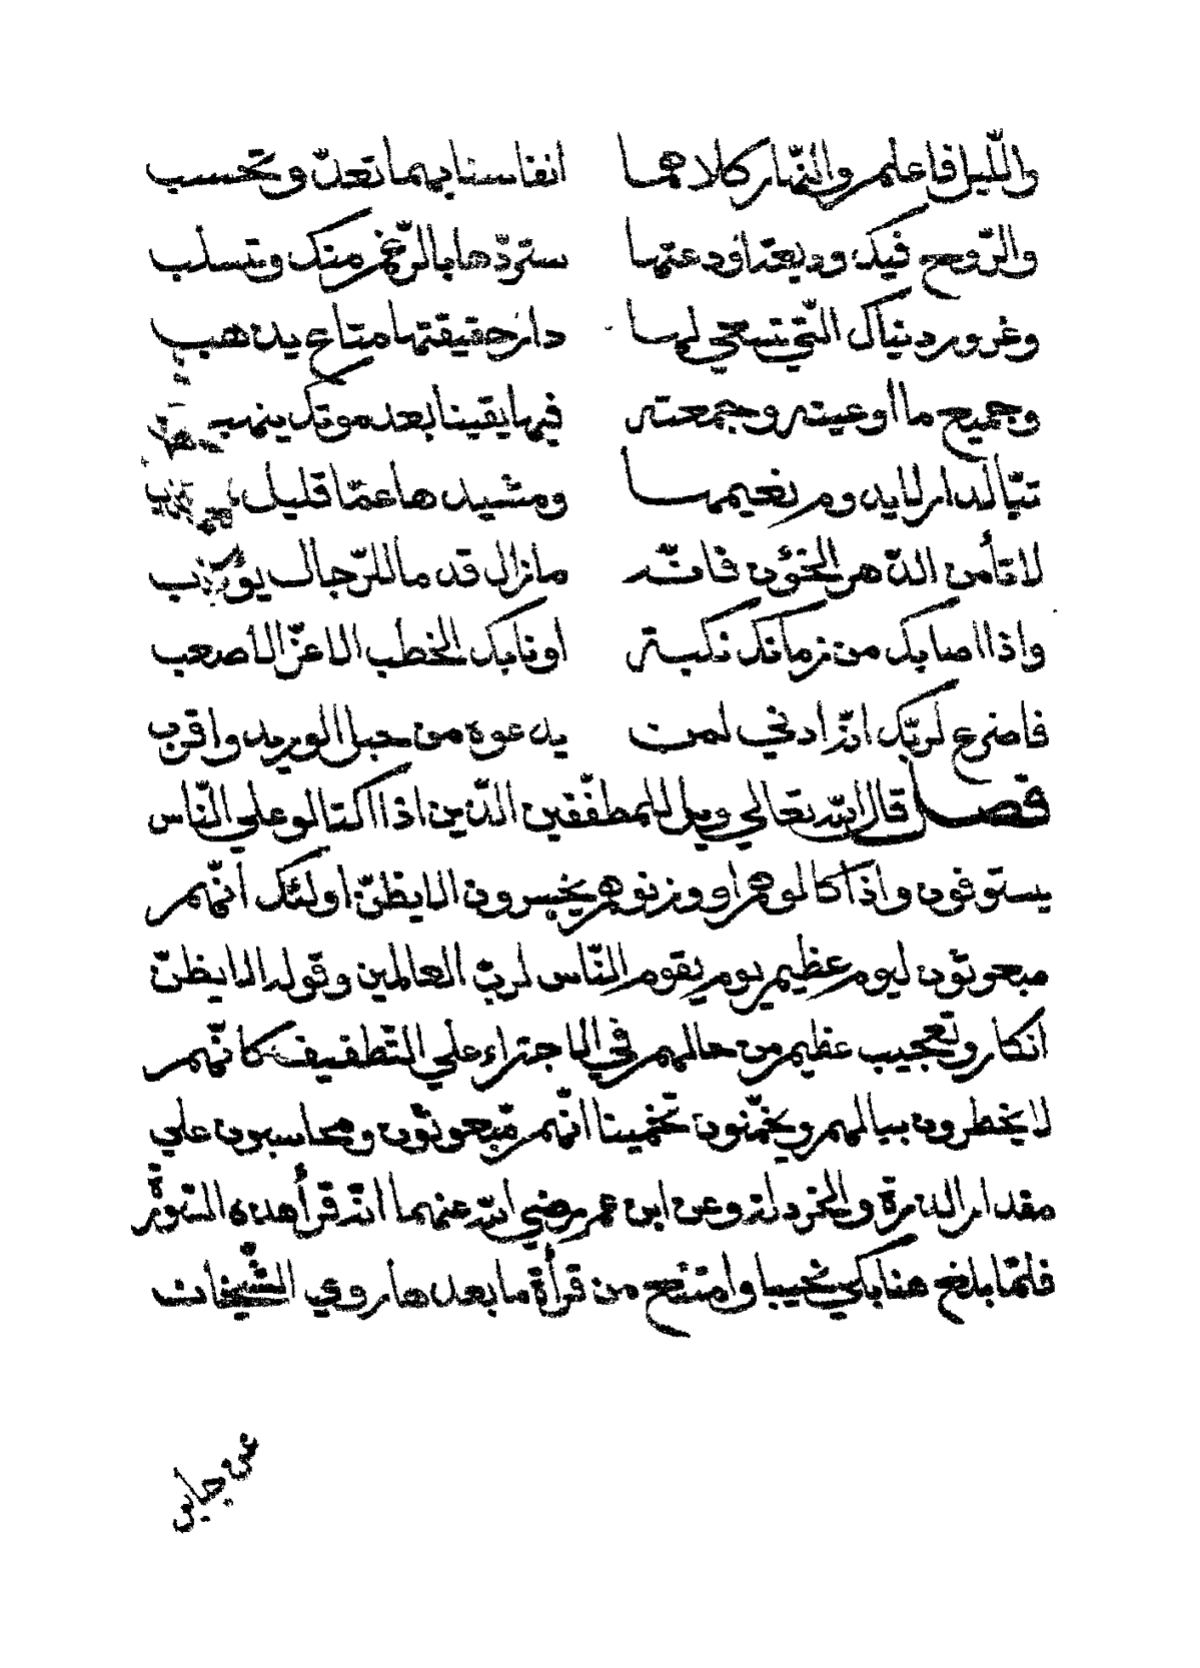 والّليل فاعلم والنّهار كلاهما انفاسنا بهما تعدّ وتحسب
والرّوح فيك وديعة اودعتها ستردّها بالرّغم منك وتسلب
وغرور دنياك الّتي تسعي لها دار حقيقتها متاع يذهب
وجميع ما اوعيته وجمعته فيها يقينا بعد موتك ينهب
تبّا لدار لايدوم نعيمها ومشيدها عمّا قليل
لا تأمن الدّهر الخؤن فانّه مازال قدما للرّجال يؤدّب
واذا اصابك من زمانك نكبة اونابك الخطب الاعزّ الاصعب
فاضرع لربّك انّه ادني لمن يدعوه من حبل الوريد واقرب
فصل قال الله تعالي ويل للمطفّفين الّذين اذا اكتالو علي النّاس
يستوفون واذا كالوهم او وزنوهم يخسرون الا يظنّ اولئك انّهم
مبعوثون ليوم عظيم يوم يقوم النّاس لربّ العالمين وقوله الا يظنّ
انكار وتعجيب عظيم من حالهم في الاجتراء علي التّطفيف كانّهم
لا يخطرون ببالهم ويخمّنون تخمينا انّهم مّبعوثون ومحاسبون علي
مقدار الذرة والخردلة وعن ابن عمر رضي الله عنهما انّه قرأ هذه السّورة
فلمّا بلغ هنا بكي نحيبا وامتنع من قرأة ما بعدها روي الشّيخان
عن جابر